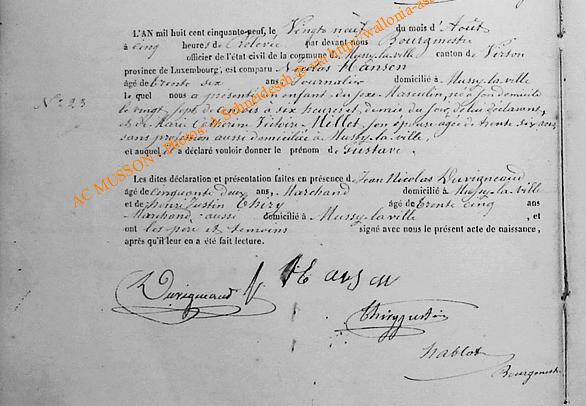 L'AN mil huit cent cinquante-neuf, le Vingt neuf du mois d'Août
à cinq heures de relevée par devant nous Bourgmestre
officier de l'état civil de la commune de Mussy-la-ville canton de Virton
province de Luxembourg, est comparu Nicolas Hanson
âgé de trente six ans Journalier domicilié à Mussy-la-ville
N° 23
lequel nous a présenté un enfant du sexe Masculin, né en son domicile
le vingt sept de ce mois à six heures et demie du soir, de lui déclarant,
et de Marie Millet, son épouse âgée de trente six ans,
sans profession aussi domiciliée à Mussy-la-ville,
et auquel il a déclaré vouloir donner le prénom de Gustave.
Les dites déclaration et présentation faites en présence de Jean Nicolas Duvigneaud
âgé de cinquante deux ans, Marchand domicilié à Mussy-la-ville
et de henri Justin Thiry âgé de trente cinq ans
Marchand aussi domicilié à Mussy-la-ville, et
ont les père et témoins signé avec nous le présent acte de naissance,
après qu'il leur en a été fait lecture.
Duvigneaud Hanson
Thiry Justin
hablot
Bourgmestre
AC MUSSON - Photos: A. Schneidesch
http://wallonia-as